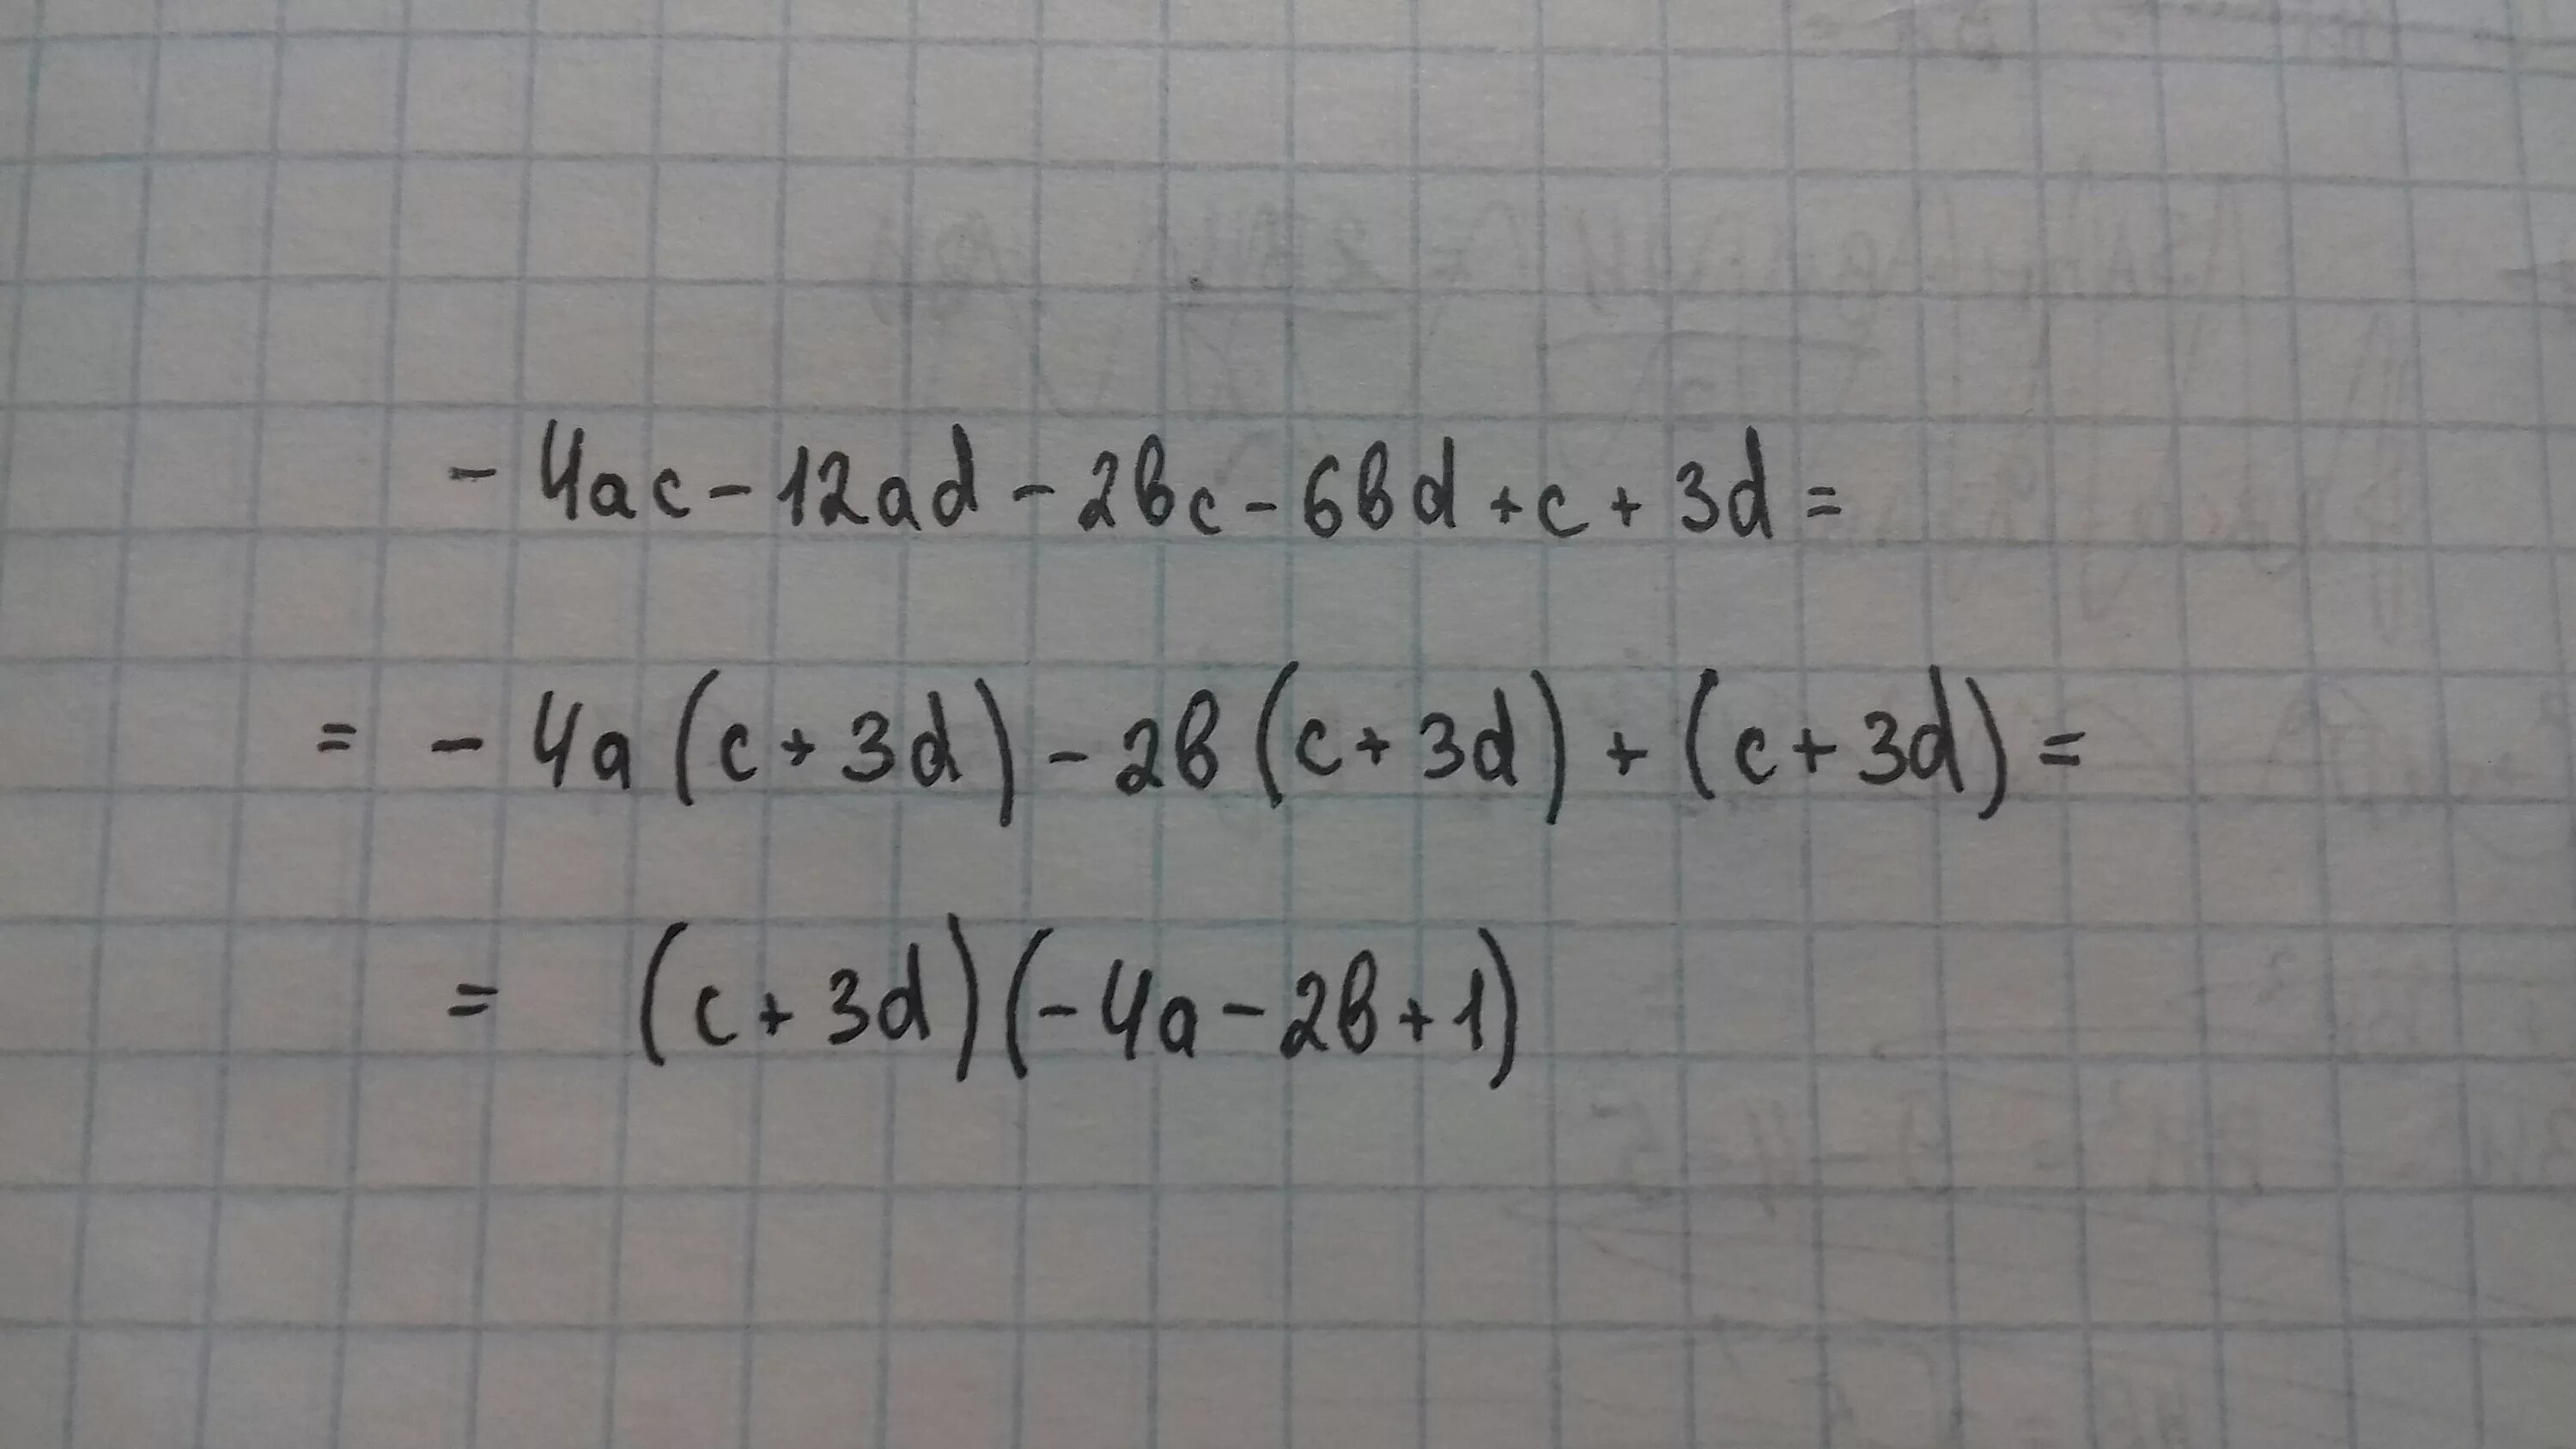 - 4ac - 12ad - 2bc - 6bd + c + 3d =
= - 4a (c + 3d) - 2b (c + 3d) + (c + 3d) =
= (c + 3d)(- 4a - 2b + 1)